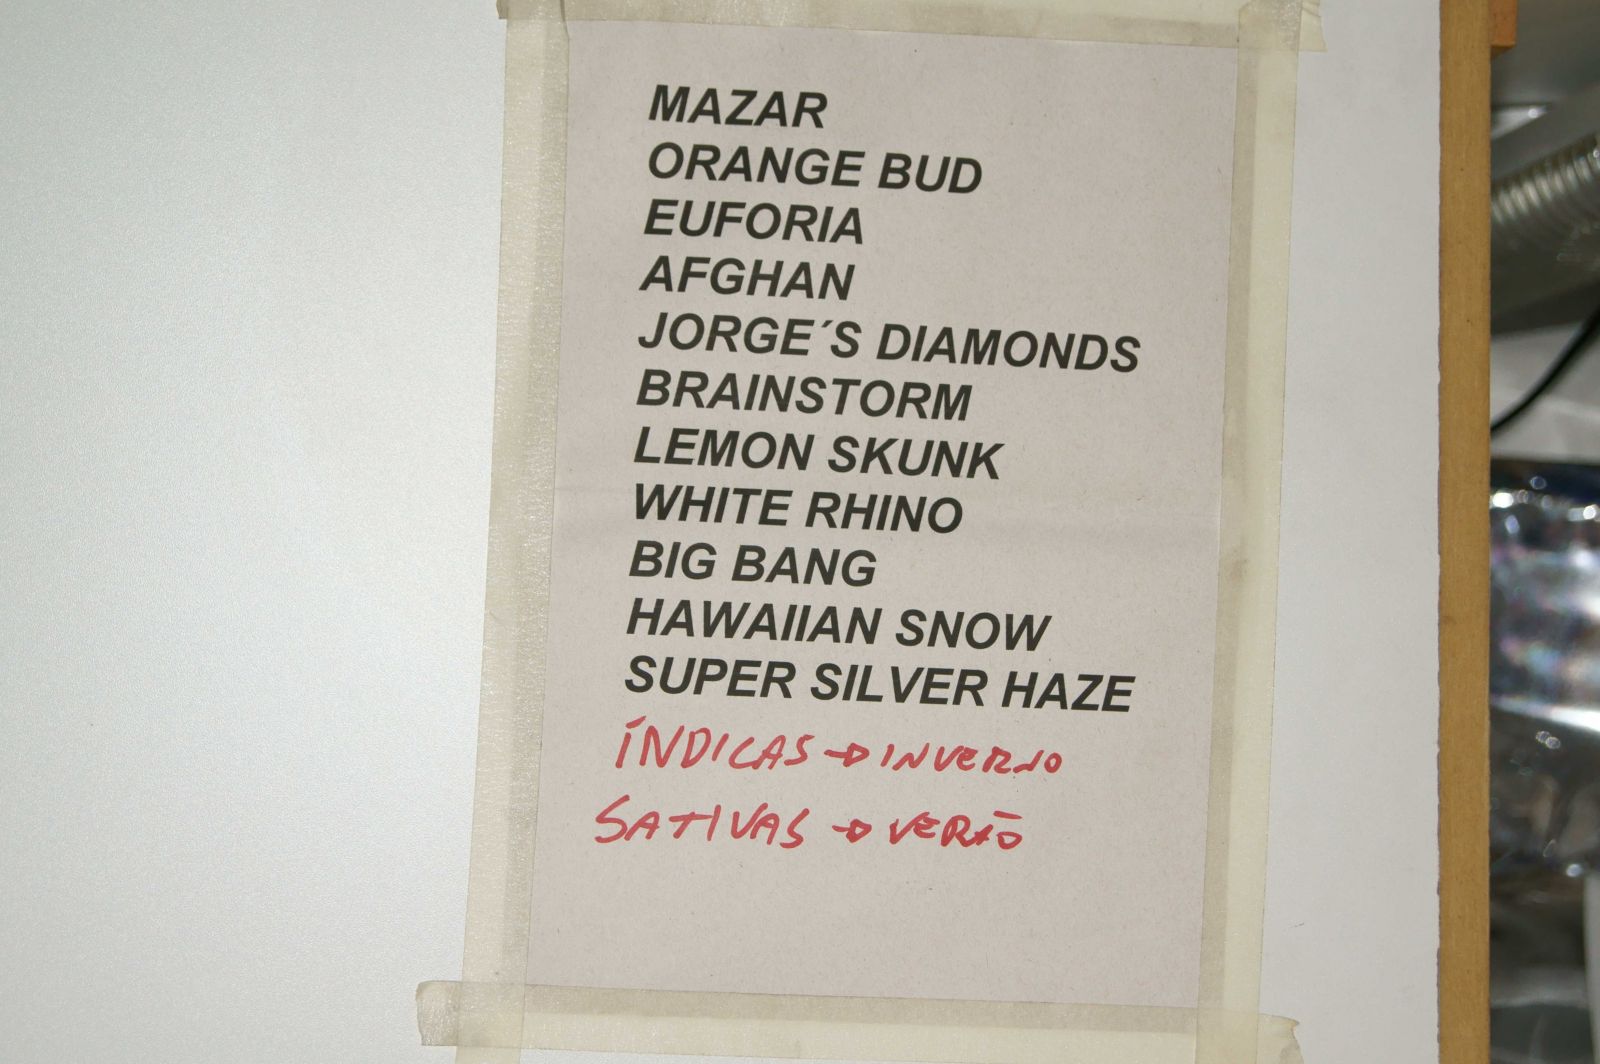 MAZAR
ORANGE BUD
EUFORIA
AFGHAN
JORGE´S DIAMONDS
BRAINSTORM
LEMON SKUNK
WHITE RHINO
BIG BANG
HAWAIIAN SNOW
SUPER SILVER HAZE
ÍNDICAS → INVERNO
SATIVAS → VERÃO